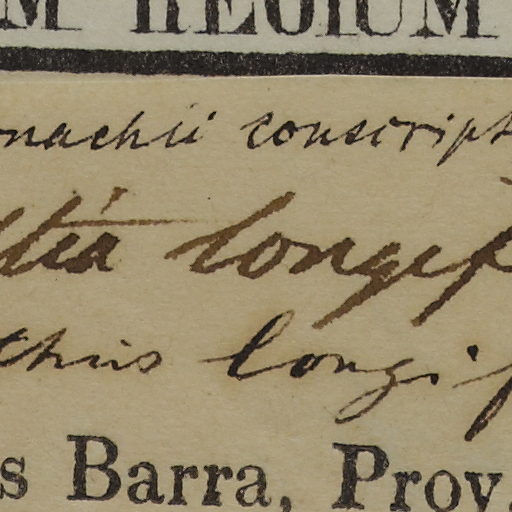 M REGIUM
nachii conscript
ltia longif
thus longif
s Barra, Prov.